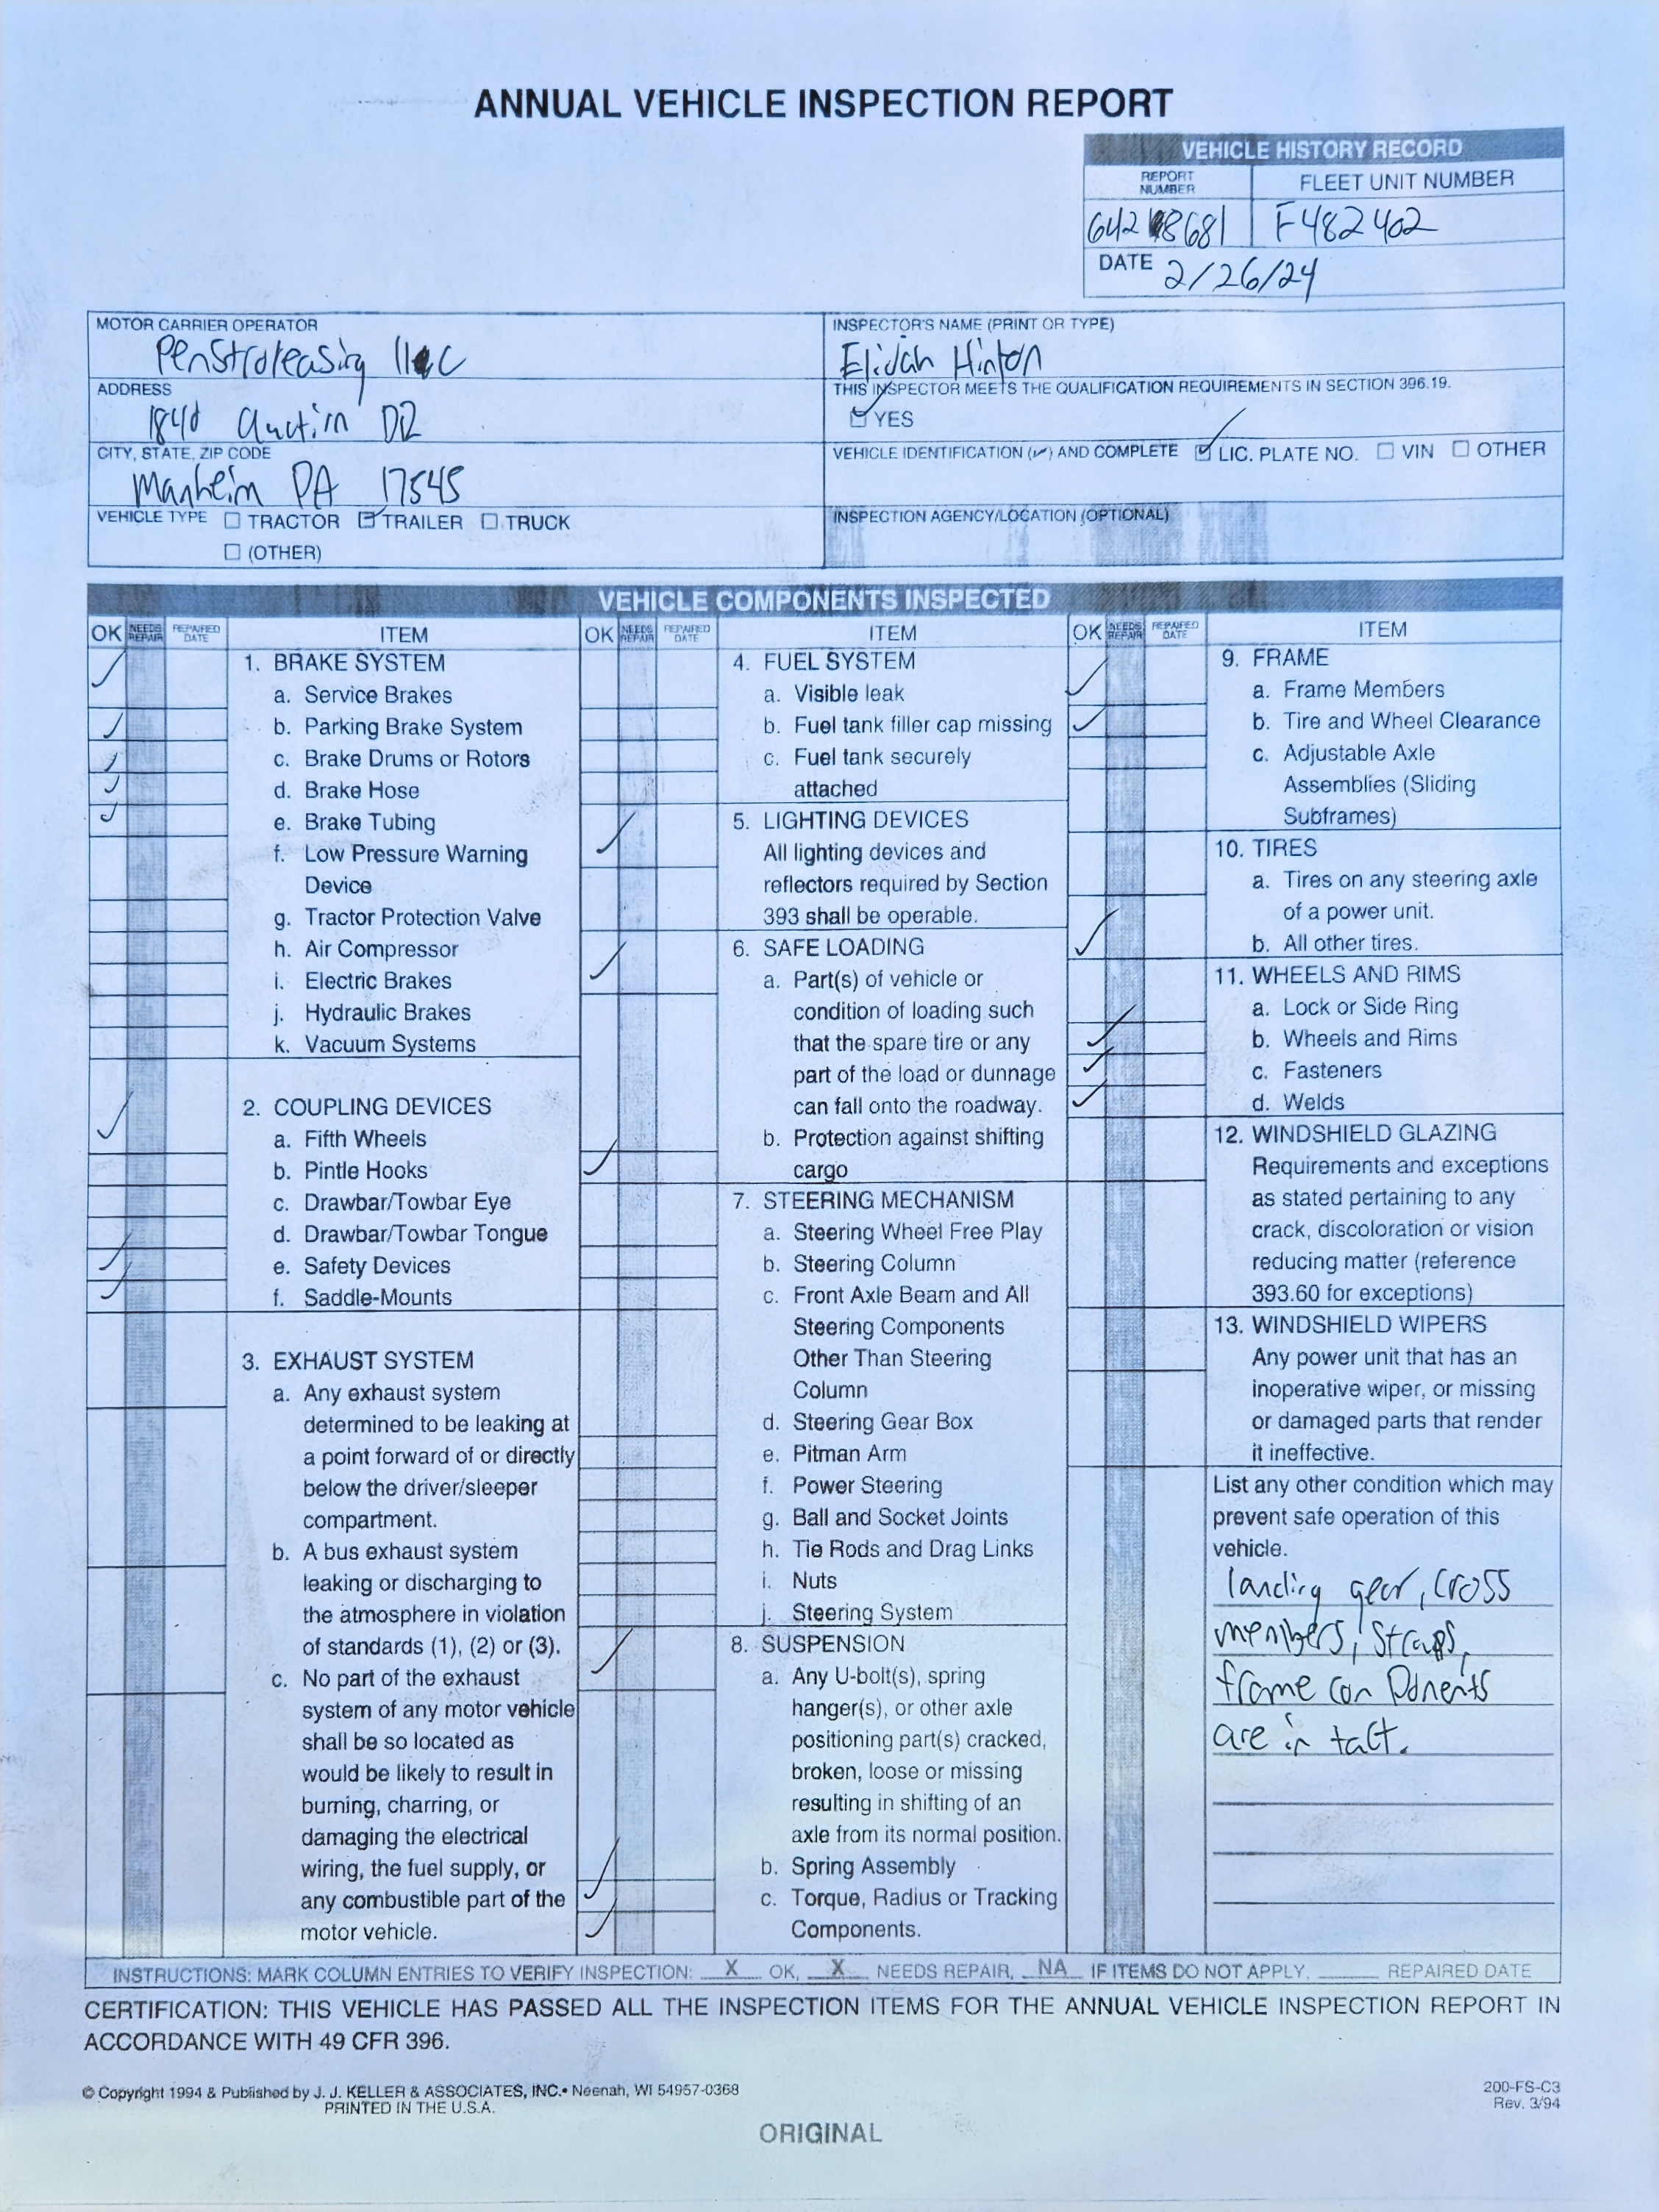 ANNUAL VEHICLE INSPECTION REPORT
VEHICLE HISTORY RECORD
REPORT NUMBER
FLEET UNIT NUMBER
642 8681
F482402
DATE 2/26/24
MOTOR CARRIER OPERATOR
Penstroleasing llc
ADDRESS
1840 Auction DR
CITY, STATE, ZIP CODE
Manheim PA 17545
VEHICLE TYPE ☐ TRACTOR ☑ TRAILER ☐ TRUCK
☐ (OTHER)
INSPECTOR'S NAME (PRINT OR TYPE)
Elijah Hinton
THIS INSPECTOR MEETS THE QUALIFICATION REQUIREMENTS IN SECTION 396.19.
☑ YES
VEHICLE IDENTIFICATION (✓) AND COMPLETE ☑ LIC. PLATE NO. ☐ VIN ☐ OTHER
INSPECTION AGENCY/LOCATION (OPTIONAL)
VEHICLE COMPONENTS INSPECTED
OK NEEDS REPAIR REPAIRED DATE ITEM
✓ 1. BRAKE SYSTEM
a. Service Brakes
✓ b. Parking Brake System
✓ c. Brake Drums or Rotors
✓ d. Brake Hose
✓ e. Brake Tubing
f. Low Pressure Warning
Device
g. Tractor Protection Valve
h. Air Compressor
i. Electric Brakes
j. Hydraulic Brakes
k. Vacuum Systems
✓ 2. COUPLING DEVICES
a. Fifth Wheels
b. Pintle Hooks
c. Drawbar/Towbar Eye
d. Drawbar/Towbar Tongue
✓ e. Safety Devices
✓ f. Saddle-Mounts
3. EXHAUST SYSTEM
a. Any exhaust system
determined to be leaking at
a point forward of or directly
below the driver/sleeper
compartment.
b. A bus exhaust system
leaking or discharging to
the atmosphere in violation
of standards (1), (2) or (3).
c. No part of the exhaust
system of any motor vehicle
shall be so located as
would be likely to result in
burning, charring, or
damaging the electrical
wiring, the fuel supply, or
any combustible part of the
motor vehicle.
OK NEEDS REPAIR REPAIRED DATE ITEM
4. FUEL SYSTEM
a. Visible leak
b. Fuel tank filler cap missing
c. Fuel tank securely
attached
✓ 5. LIGHTING DEVICES
All lighting devices and
reflectors required by Section
393 shall be operable.
✓ 6. SAFE LOADING
a. Part(s) of vehicle or
condition of loading such
that the spare tire or any
part of the load or dunnage
can fall onto the roadway.
✓ b. Protection against shifting
cargo
7. STEERING MECHANISM
a. Steering Wheel Free Play
b. Steering Column
c. Front Axle Beam and All
Steering Components
Other Than Steering
Column
d. Steering Gear Box
e. Pitman Arm
f. Power Steering
g. Ball and Socket Joints
h. Tie Rods and Drag Links
i. Nuts
j. Steering System
✓ 8. SUSPENSION
a. Any U-bolt(s), spring
hanger(s), or other axle
positioning part(s) cracked,
broken, loose or missing
resulting in shifting of an
axle from its normal position.
✓ b. Spring Assembly
✓ c. Torque, Radius or Tracking
Components.
OK NEEDS REPAIR REPAIRED DATE ITEM
✓ 9. FRAME
a. Frame Members
✓ b. Tire and Wheel Clearance
c. Adjustable Axle
Assemblies (Sliding
Subframes)
10. TIRES
a. Tires on any steering axle
of a power unit.
✓ b. All other tires.
11. WHEELS AND RIMS
a. Lock or Side Ring
✓ b. Wheels and Rims
✓ c. Fasteners
✓ d. Welds
12. WINDSHIELD GLAZING
Requirements and exceptions
as stated pertaining to any
crack, discoloration or vision
reducing matter (reference
393.60 for exceptions)
13. WINDSHIELD WIPERS
Any power unit that has an
inoperative wiper, or missing
or damaged parts that render
it ineffective.
List any other condition which may
prevent safe operation of this
vehicle.
landing gear, cross
members, straps,
frame components
are in tact.
INSTRUCTIONS: MARK COLUMN ENTRIES TO VERIFY INSPECTION: X OK, X NEEDS REPAIR, NA IF ITEMS DO NOT APPLY, ______ REPAIRED DATE
CERTIFICATION: THIS VEHICLE HAS PASSED ALL THE INSPECTION ITEMS FOR THE ANNUAL VEHICLE INSPECTION REPORT IN
ACCORDANCE WITH 49 CFR 396.
© Copyright 1994 & Published by J. J. KELLER & ASSOCIATES, INC.• Neenah, WI 54957-0368
PRINTED IN THE U.S.A.
200-FS-C3
Rev. 3/94
ORIGINAL